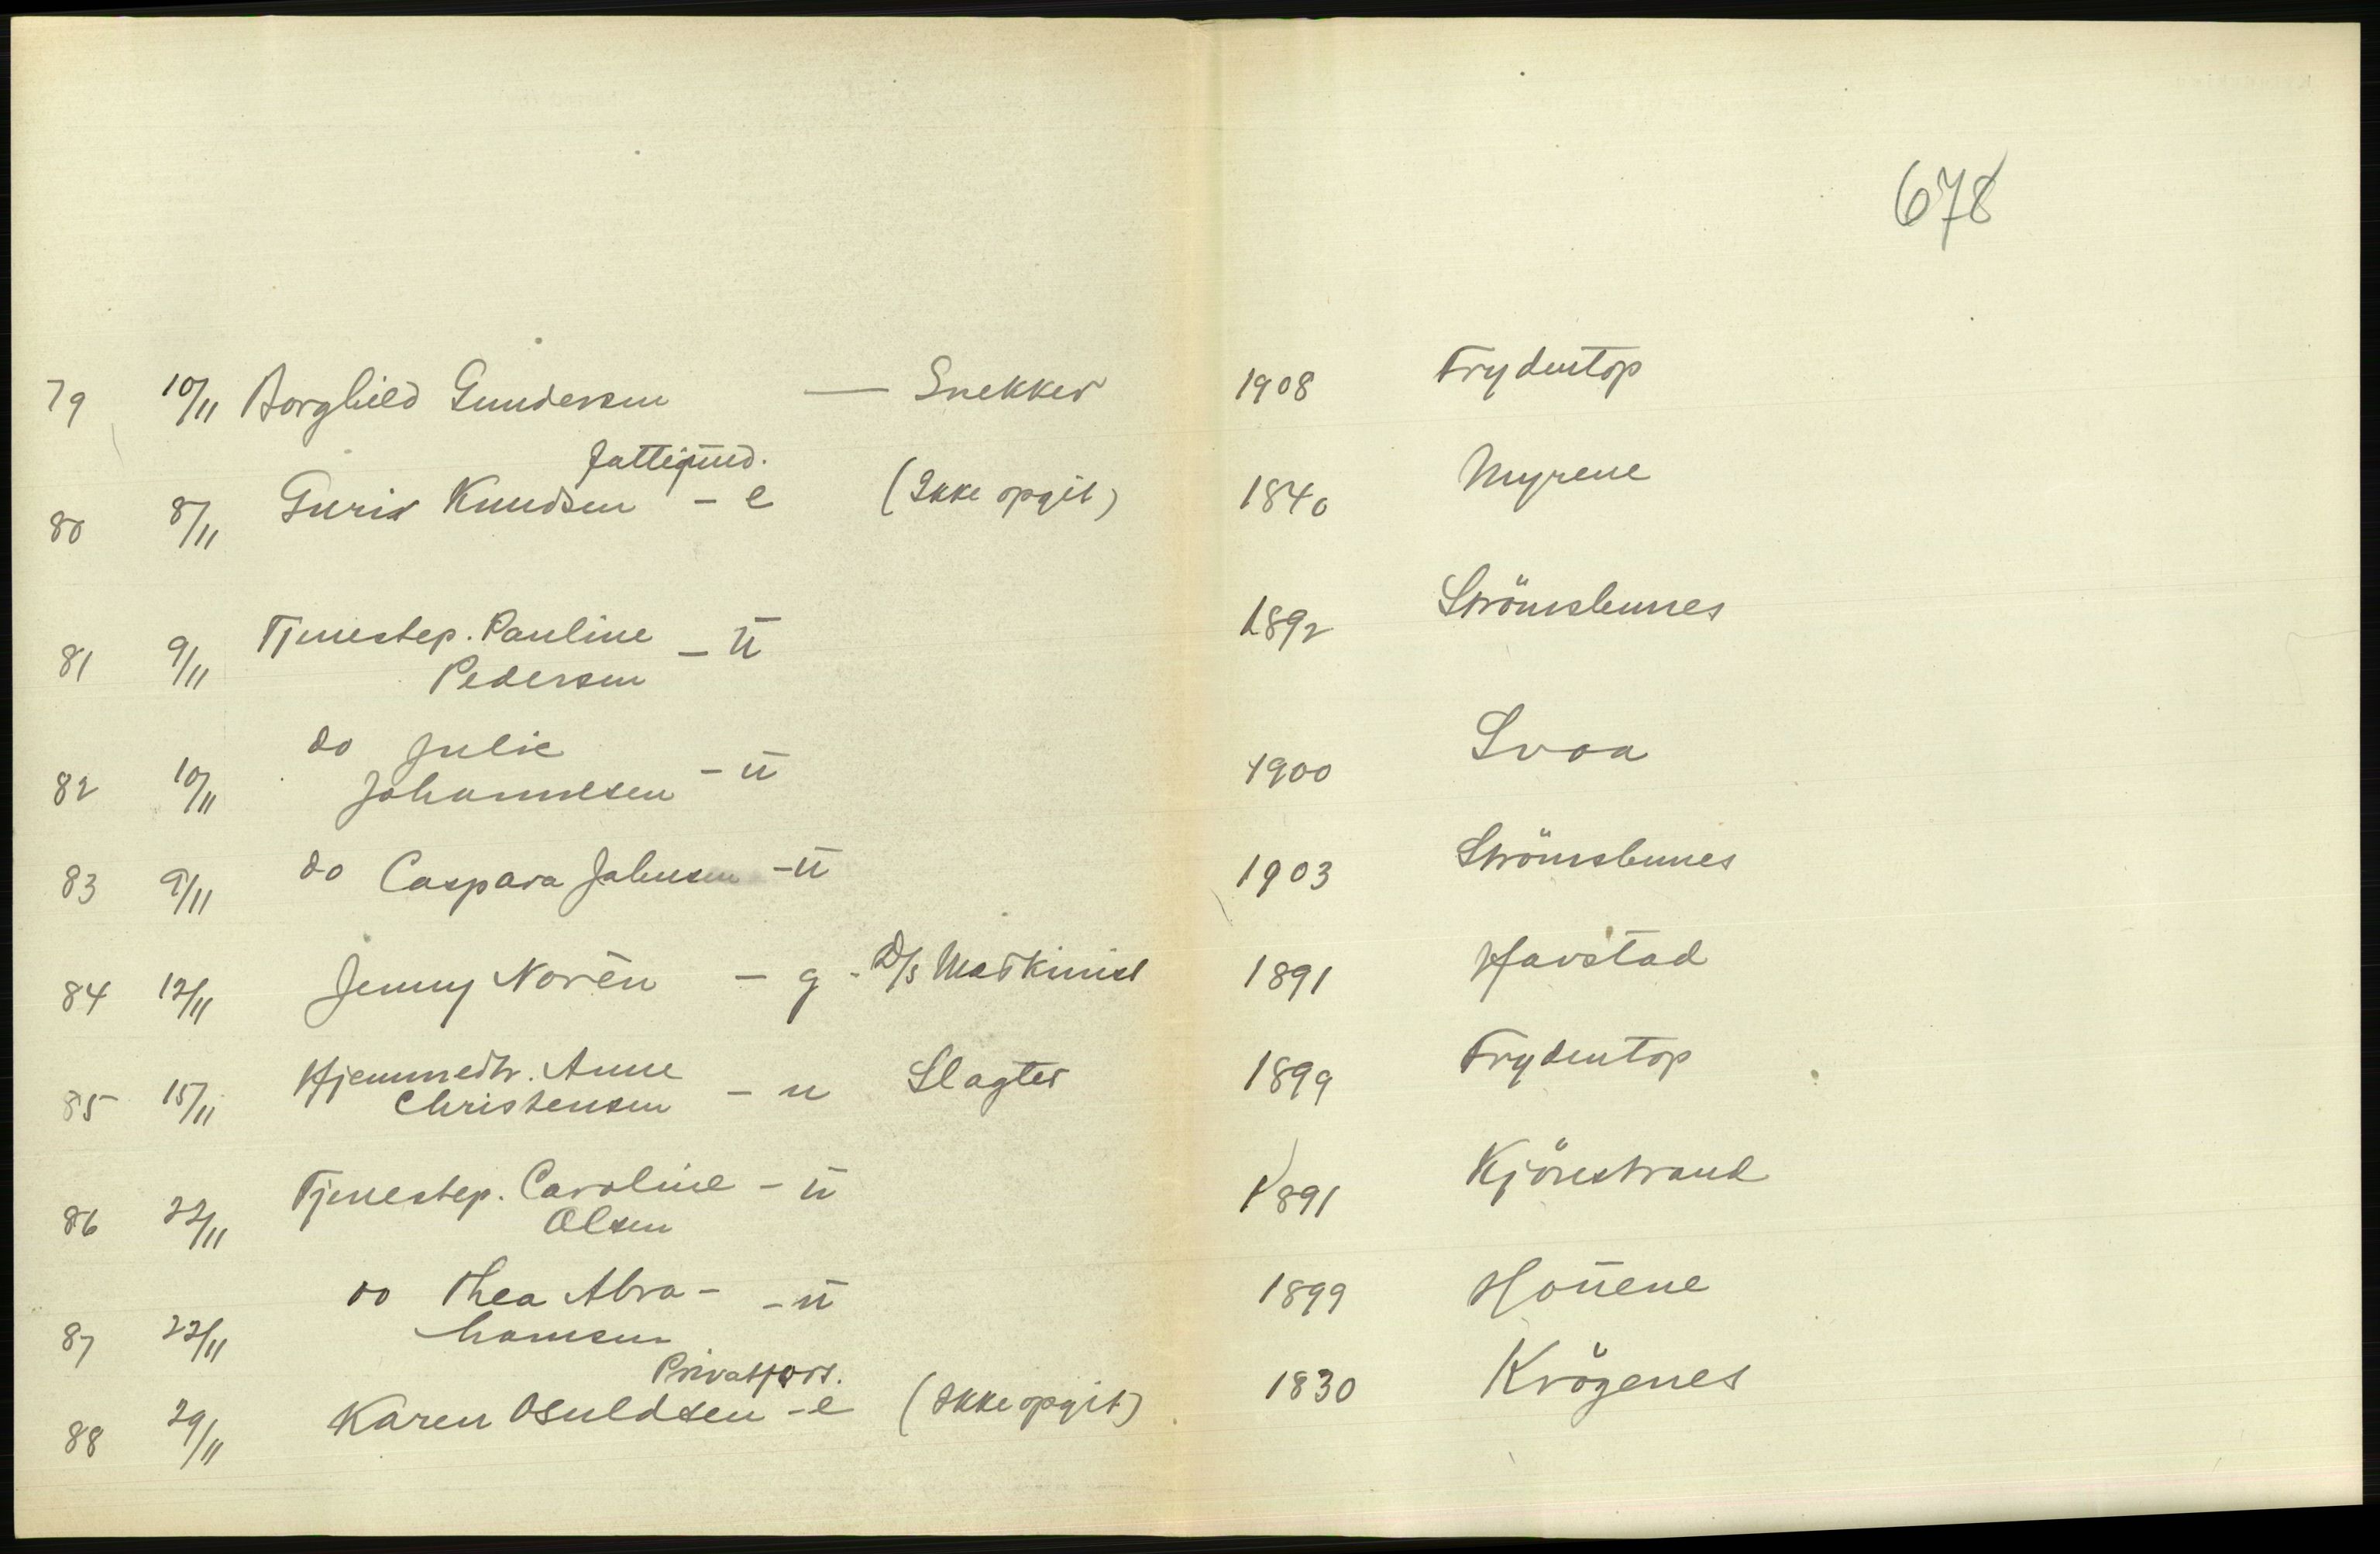 678
79 10/11 Borghild Gundersen — Snekker 1908 Frydentop
Fattigund.
80 8/11 Guris Knudsen - e (Ikke opgit) 1840 Myrene
81 9/11 Tjenestep. Pauline - ū 1892 Strömsbunes
Pedersen
do Julie
82 10/11 Johannesen - ū 1900 Svoa
83 9/11 do Caspara Johnsen - ū 1903 Strömsbunes
84 12/11 Jenny Norén - g - D/s Maskinist 1891 Havstad
85 15/11 Hjemmedtr. Anne - u Slagter 1899 Frydentop
Christensen
86 22/11 Tjenestep. Caroline - ū 1891 Kjörestrand
Olsen
87 22/11 do Thea Abra- - ū 1899 Houene
hamsen
Privatfors.
88 29/11 Karen Osuldsen - e (Ikke opgit) 1830 Krögenes